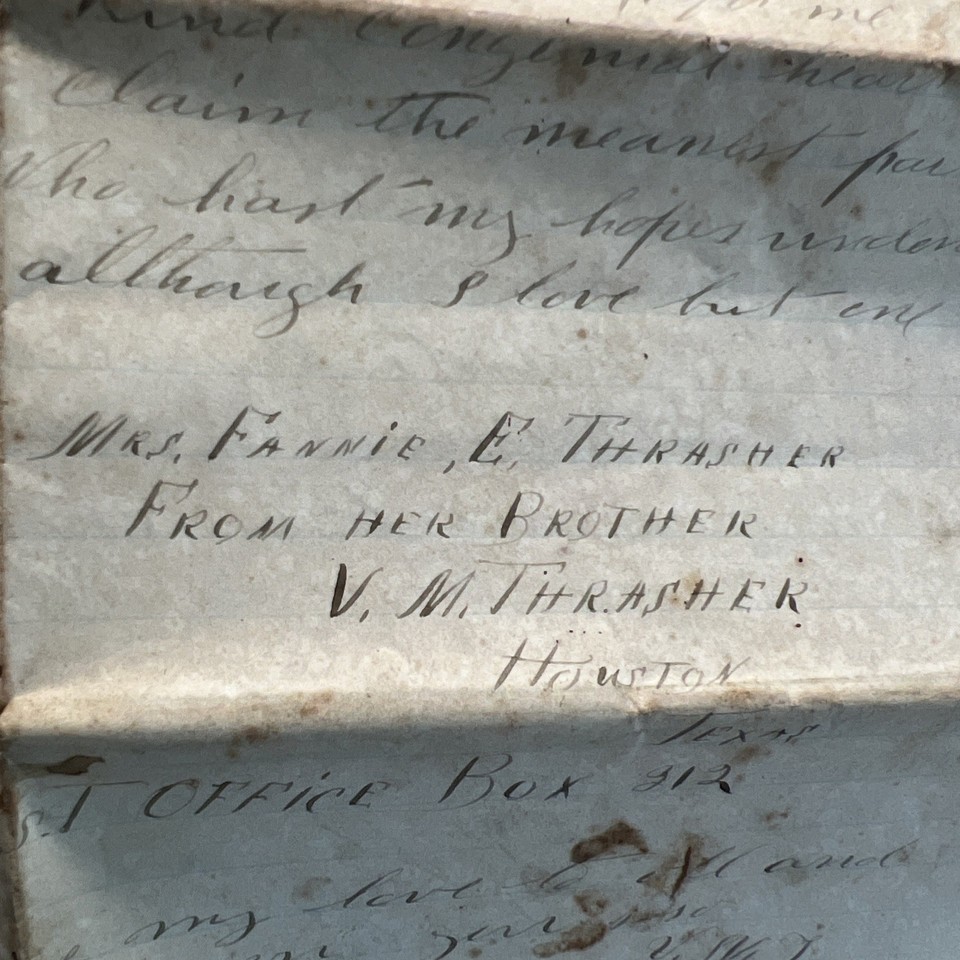 me
Kind Congenial hear
Claim the meanest par
Who hast my hopes under
although I love but one
MRS. FANNIE, E. THRASHER
FROM HER BROTHER
V. M. THRASHER
HOUSTON
TEXAS
ST OFFICE BOX 212
my love to all and
your